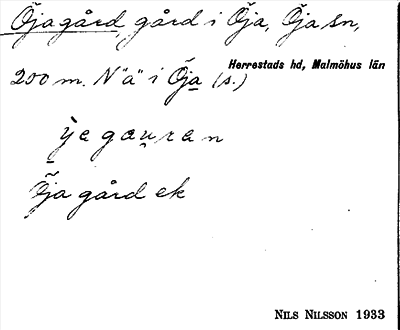 Öjagård, gård i Öja, Öja sn,
Herrestads hd, Malmöhus län
200 m. N "a" i Öja (s.)
Öja gård ek
NILS NILSSON 1933